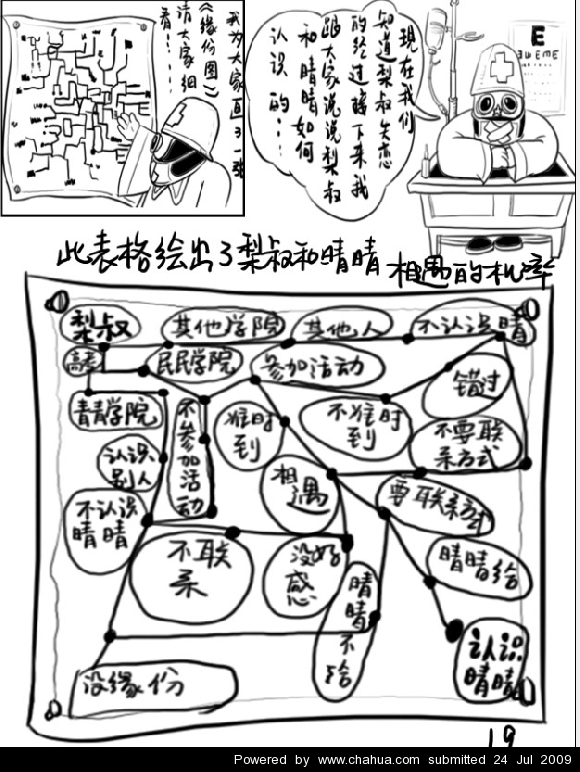 我为大家画了一张
《缘份图》
请大家细
看!……
现在我们
知道梨叔失恋
的经过接下来我
跟大家说说梨叔
和晴晴如何
认识的…
E
此表格绘出了梨叔和晴晴相遇的机率
梨叔
其他学院
其他人
不认识晴
高考
民民学院
参加活动
错过
青青学院
不参加活动
准时
到
不准时
到
不要联
系方式
认识
别人
相
遇
要联系方式
不认识
晴晴
不联
系
没好
感
晴晴给
晴晴不给
认识
晴晴
没缘份
19
Powered by www.chahua.com submitted 24 Jul 2009